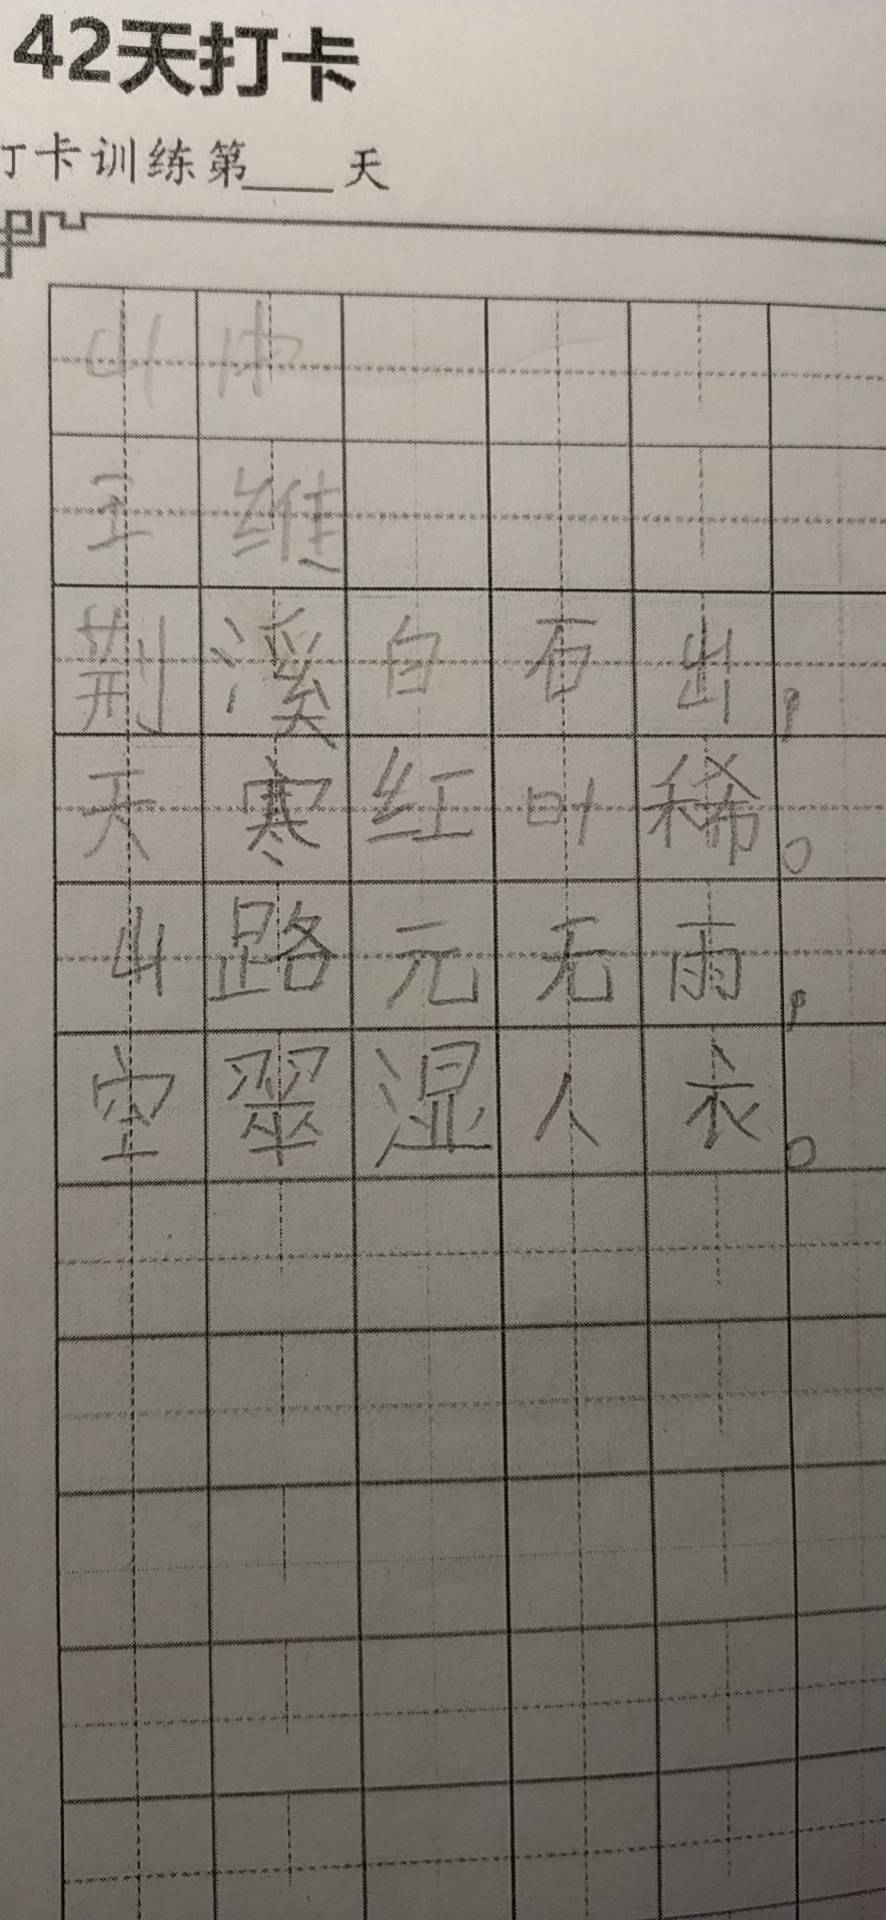 42天打卡
打卡训练第____天
山中
王维
荆溪白石出，
天寒红叶稀。
山路元无雨，
空翠湿人衣。